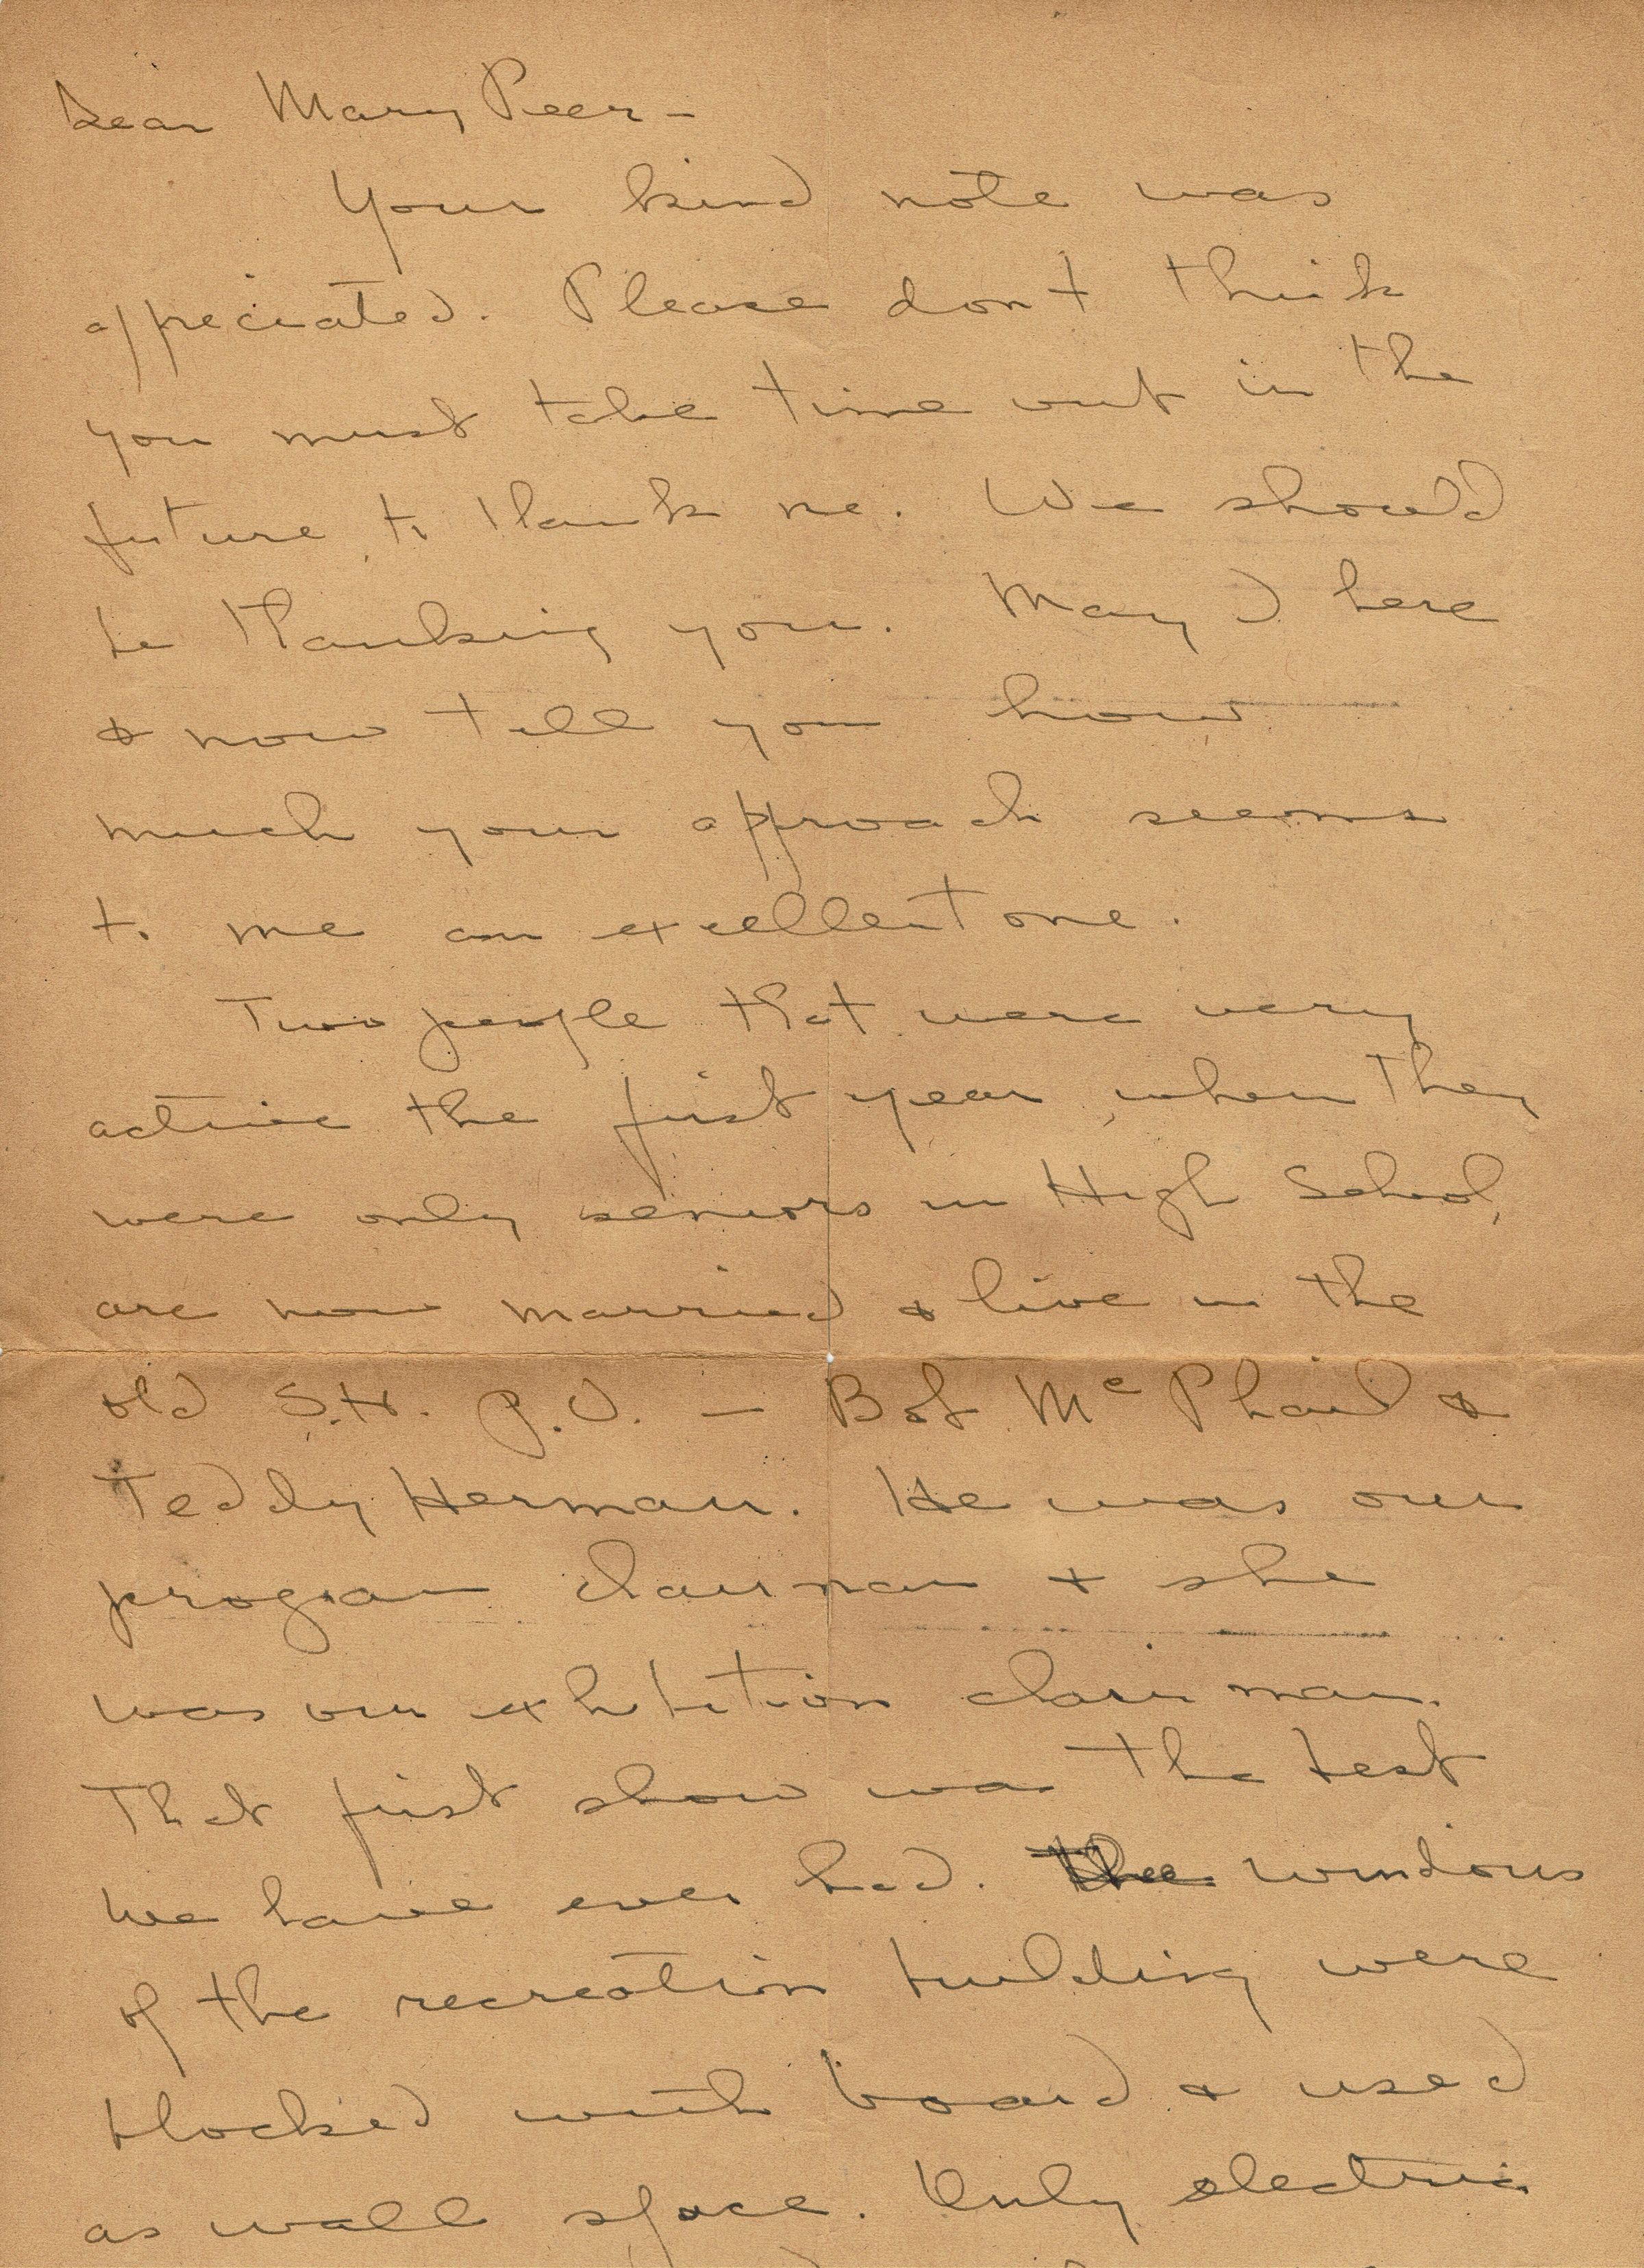 Dear Mary Peer –
Your kind note was
appreciated. Please don't think
you must take time out in the
future to thank me. We should
be thanking you. May I here
& now tell you how
much your approach seems
to me an excellent one.
Two people that were very
active the first year, when they
were only seniors in High School,
are now married & live in the
old S.H. P.O. — Bob McPhail &
Teddy Herman. He was our
program chairman + she
was our exhibition chairman.
That first show was the best
we have ever had. The windows
of the recreation building were
blocked with board & used
as wall space. Only electric